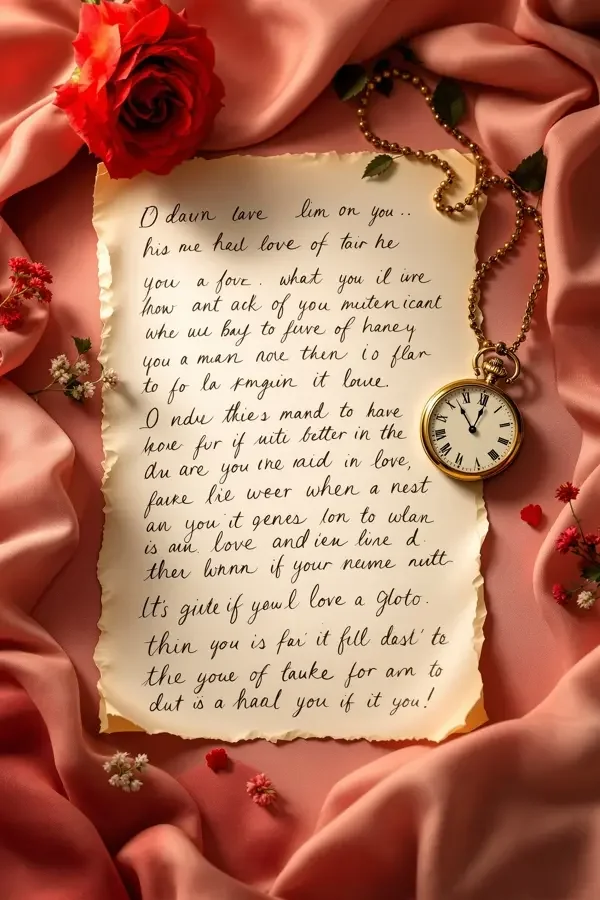 O daun lave lim on you..
his me had love of tair he
you a fove. what you il ure
how ant ack of you muten icant
whe uu bay to fuve of haney
you a man noe then io flar
to fo la kmgin it loue.
O ndu thies mand to have
how fur if uiti better in the
du are you ine raid in love,
fauke lie weer when a nest
an you it genes lon to wlan
is am. love and ien line d.
ther if your neume nutt
It's giute if youl love a gloto.
thin you is fai it fill dast' te
the youe of tauke for am to
dut is a haal you if it you!